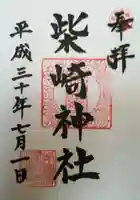 奉拝
柴崎神社
平成三十年七月一日